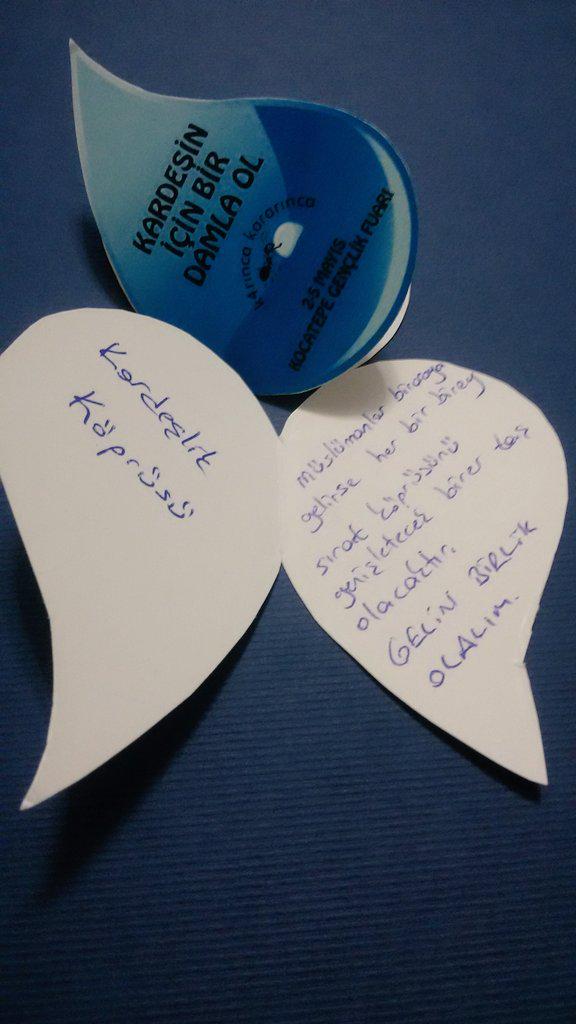 KARDEŞİN
İÇİN BİR
DAMLA OL
karınca kararınca
2-5 MAYIS
KOCATEPE GENÇLİK FUARI
Kardeşlik
Köprüsü
müslümanlar biraraya
gelirse her bir birey
sırat köprüsünü
genişletecek birer taş
olacaktır.
GELİN BİRLİK
OLALIM.